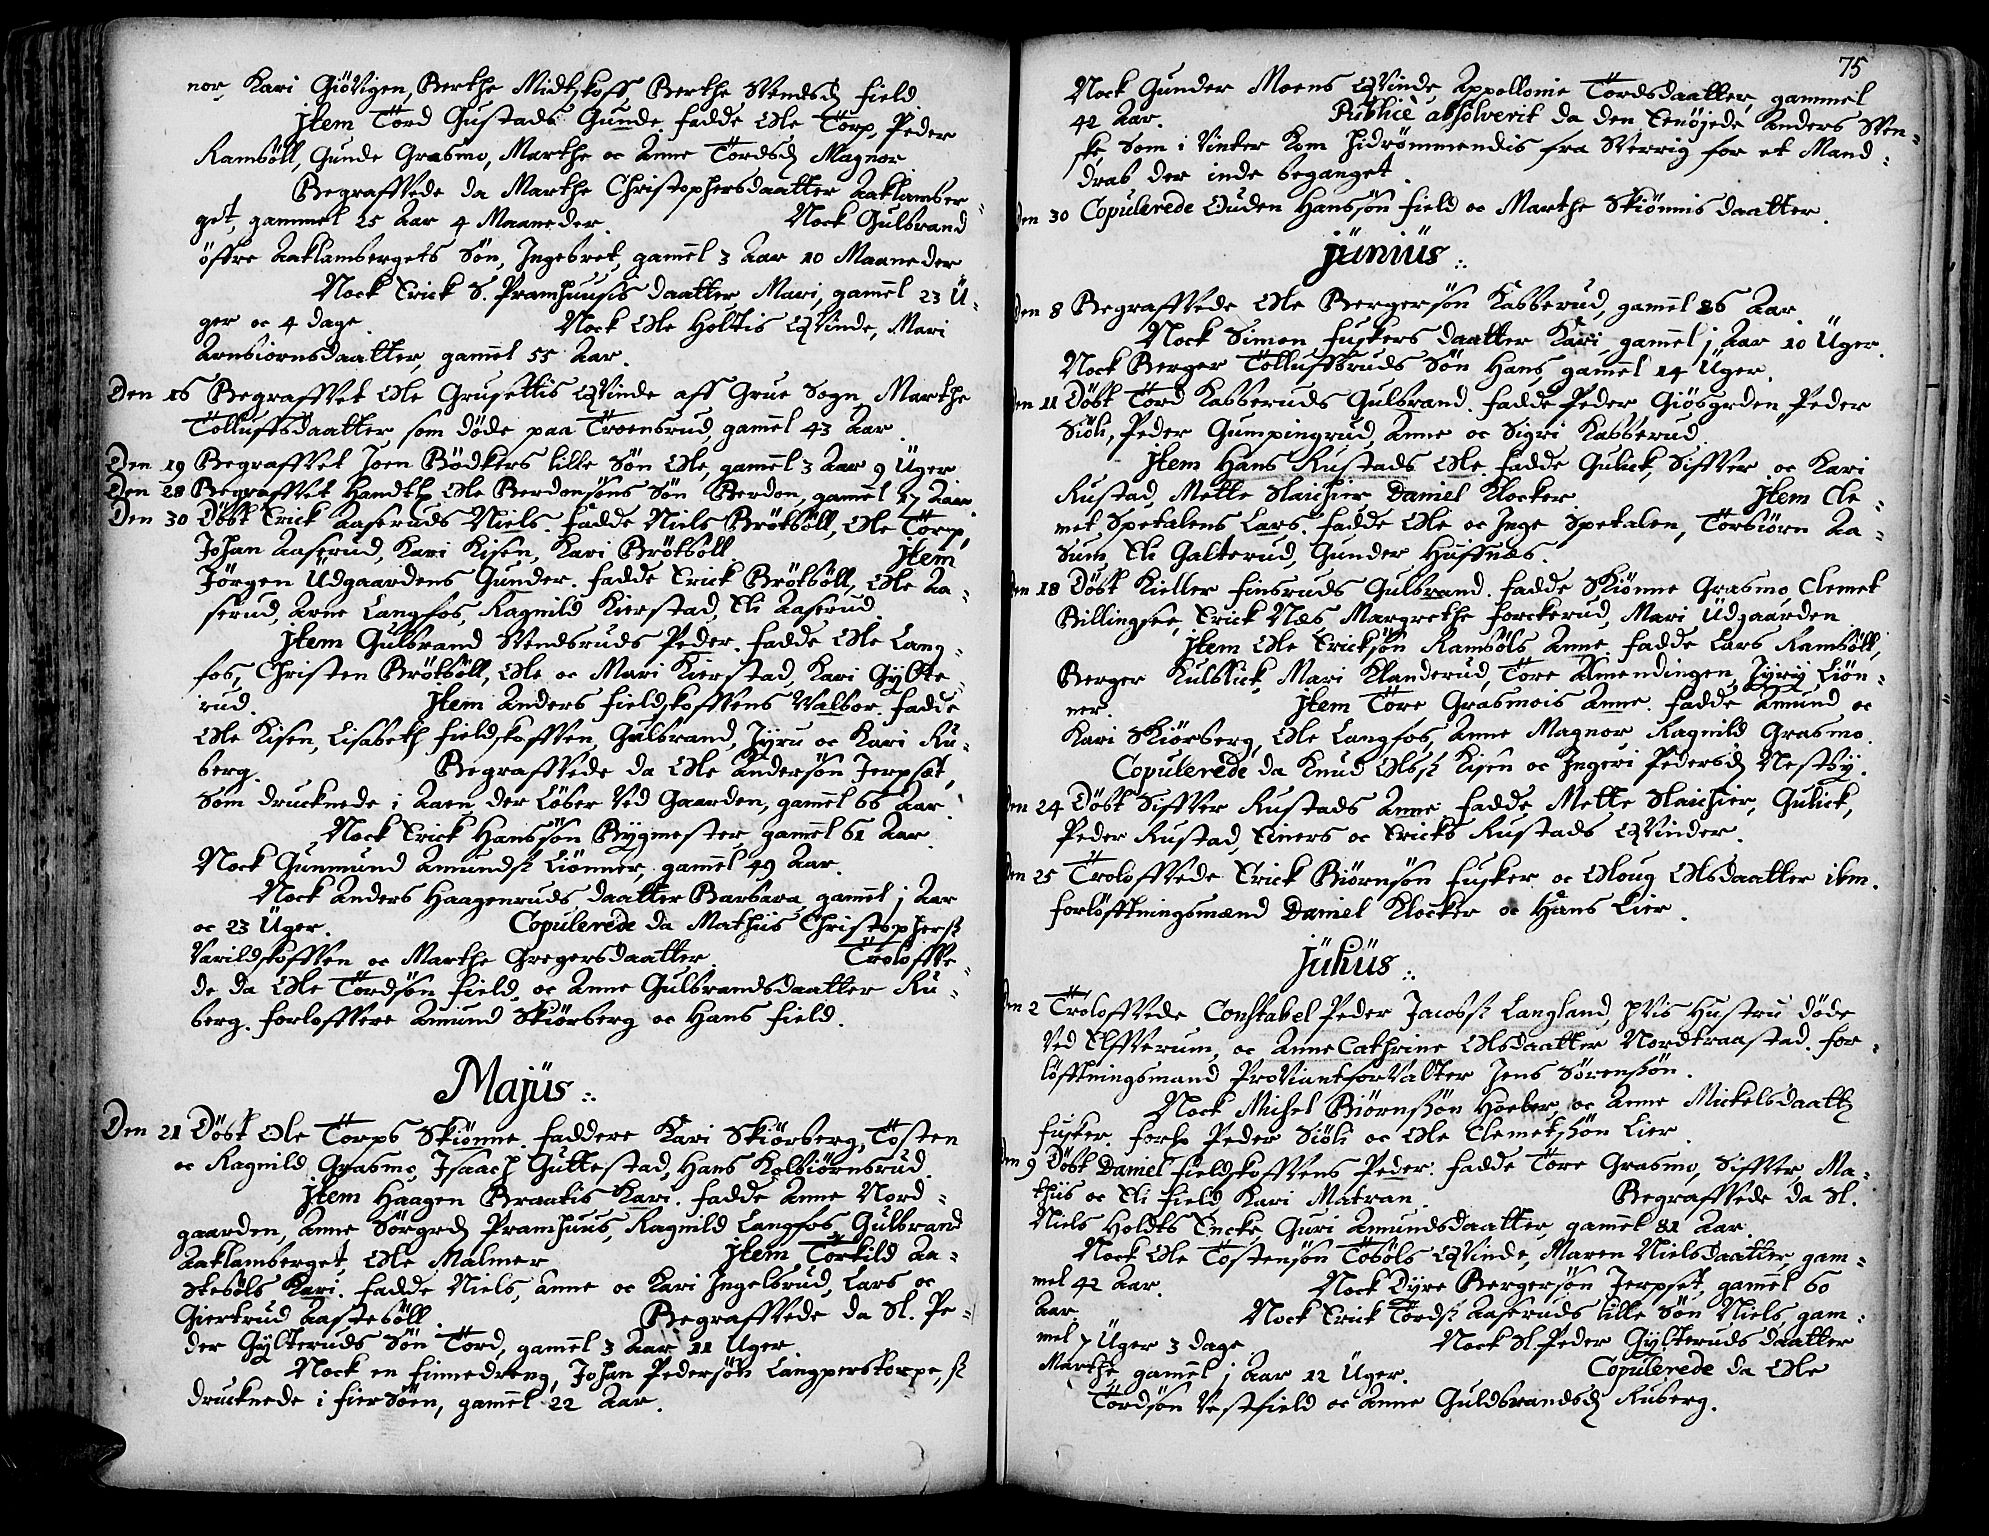 nor Kari Giövigen, Berthe Midtskoff Berthe Svendsd Field
Jtem Törd Gustads Gunde. fadde Ole Törp, Peder
Ramsöll, Gunde Grasmo, Marthe oc Anne Tördsd Magnor
Begraffvede da Marthe Christophersdaatter Aaklamber-
get, gammel 25 Aar 4 Maaneder. Nock Gulbrand
öffre Aaklambergets Sön, Ingebret, gamel 3 Aar 10 Maaneder
Nock Erick S. Pramhuusis daatter Mari, gamel 23 Ü-
ger oc 4 dage. Nock Ole Holtis Qvinde, Mari
Arnbiornsdaatter, gamel 55 Aar.
Den 16 Begraffvet Ole Grusettis Qvinde aff Grue Sogn Marthe
Tölluffsdaatter som döde paa Troensrud, gamel 43 Aar.
Den 19 Begraffvet Joen Bödkers lille Sön Ole, gamel 3 Aar 9 Üger
Den 28 Begraffvet Ole Berdonsöns Sön Berdon, gamel 17 Aar.
Den 30 Döbt Erick Aaseruds Niels. fadde Niels Brötsöll, Ole Törp,
Johan Aaserud, Kari Kisen, Kari Brötsöll Jtem
Jörgen Üdgaardens Gunder. fadde Erick Brötsöll, Ole Aa-
serud, Arne Langfos, Ragnild Kierstad, Eli Aaserud
Jtem Gulbrand Svendsruds Peder. fadde Ole Lang-
fos, Christen Brötsöll, Ole oc Mari Kierstad, Kari Gylte-
rud. Jtem Anders Fieldskoffvens Valbor fadde
Ole Kisen, Lisabeth Fieldskoffven, Gulbrand, Jyru oc Kari Ru-
berg. Begraffvede da Ole Andersön Jerpset,
Som drucknede i Aaen der Löber ved Gaarden, gamel 66 Aar
Nock Erick Hanssön Bygmester gamel 61 Aar.
Nock Gunmund Amunds Liönner, gamel 49 Aar.
Nock Anders Haagenruds daatter Barbara gamel j Aar
oc 23 Üger. Copulerede da Mathiis Christophers
Varildskoffven oc Marthe Gregersdaatter. Troloffve-
de da Ole Tördsön Field, oc Anne Gulbrandsdaatter Ru-
berg. Forloffvere Amund Skiörberg oc Hans Field.
Majüs:.
Den 21 Döbt Ole Törps Skiönne. faddere Kari Skiörberg, Tösten
oc Ragnild Grasmo, Isaach Guttestad, Hans Kolbiörnsrud
Jtem Haagen Braatis Kari. fadde Anne Nord-
gaarden, Anne Sörgrd, Pramhuus, Ragnild Langfos Gulbrand
Aaklamberget, Ole Malmer Jtem Törkild Aa-
steböls Kari. fadde Niels, Anne oc Kari Ingelbrud, Lars oc
Giertrud Aastebøll. Begraffvede da Sl. Pe-
der Gylteruds Sön Tord, gamel 3 Aar 11 Üger
Nock en Finnedreng, Johan Pedersön Langperstorpe,
drucknede i FierSöen, gamel 22 Aar.
75
Nock Gunder Moens Qvinde Appollonie Tördsdaatter, gammel
42 Aar. Publicè absolverit da den Anders Sven-
ske Som i Vinter Kom hidrömmendis fra Sverrig for et Mand-
drab der inde beganget.
Den 30 Copulerede Ouden Hanssön Field oc Marthe Skiönnisdaatter.
jünius:.
Den 8 Begraffvede Ole Bergersön Kabberud, gamel 86 Aar.
Nock Simen Fuskers daatter Kari, gamel j Aar 10 Üger.
Nock Berger Tölluffsruds Sön Hans gamel 14 Üger.
Den 11 Döbt Tord Kabberuds Gulbrand. fadde Peder Giösgrden Peder
Siöli, Peder Gumpingrud, Anne oc Sigri Kabberud.
Jtem Hans Rustads Ole. fadde Gulick, Siffver oc Kari
Rustad, Mette Slaichier Daniel Klocker Jtem Cle-
met Spetalens Lars. fadde Ole oc Inge Spetalen, Torbiörn Aa-
sum Eli Galterud, Gunder Huffnæs.
Den 18 Döbt Kieller Finsruds Gulbrand. fadde Skiönne Grasmo Clemet
Billingsee, Erick Næs Margrethe Forckerud, Mari Üdgaarden
Jtem Ole Ericksön Ramsöls Anne. fadde Lars Ramsöll,
Berger Kulblick, Mari Klanderud, Töre Almendingen, Jyry Liön-
ner. Jtem Töre Grasmois Anne. fadde Amund oc
Kari Skiörberg, Ole Langfos, Anne Magnor Ragnild Grasmo.
Copulerede da Knud Olss Kisen oc Ingeri Pedersd Nestby.
Den 24 Döbt Siffver Rustads Anne fadde Mette Slaichier, Gulick,
Peder Rustad, Einers oc Ericks Rustads Qvinder.
Den 25 Troloffvede Erick Biörnsön Fusker oc Oloug Olsdaatter ibm.
Forlöfftningsmænd Daniel Klocker oc Hans Lier.
jülius:.
Den 2 Troloffvede Constabel Peder Jacobs Langland, hvis Hustru döde
ved Elffverum, oc Anne Cathrine Olsdaatter Nordtraastad. For-
löfftningsmand Proviantforvalter Jens Sörensön.
Nock Michel Biörnsön Hoeber, oc Anne Mickelsdaatt
Fusker. Forl Peder Siöli oc Ole Clemetsön Lier.
Den 9 Döbt Daniel Fieldskoffvens Peder. fadde Töre Grasmo, Siffver, Ma-
thiis oc Eli Field Kari Matran Begraffvede da Sl.
Niels Holdts Encke Guri Amundsdaatter, gamel 81 Aar.
Nock Ole Töstensön Tobøls Qvinde, Maren Nielsdaatter, gam-
mel 42 Aar. Nock Dyre Bergersön Jerpset, gamel 60
Aar. Nock Erick Tords Aaseruds lille Sön Niels, gam-
mel 7 Üger 3 dage. Nock Sl. Peder Gylteruds daatter
Marthe gamel j Aar 12 Üger. Copulerede da Ole
Tördsön Vestfield oc Anne Guldbrandsd Ruberg.